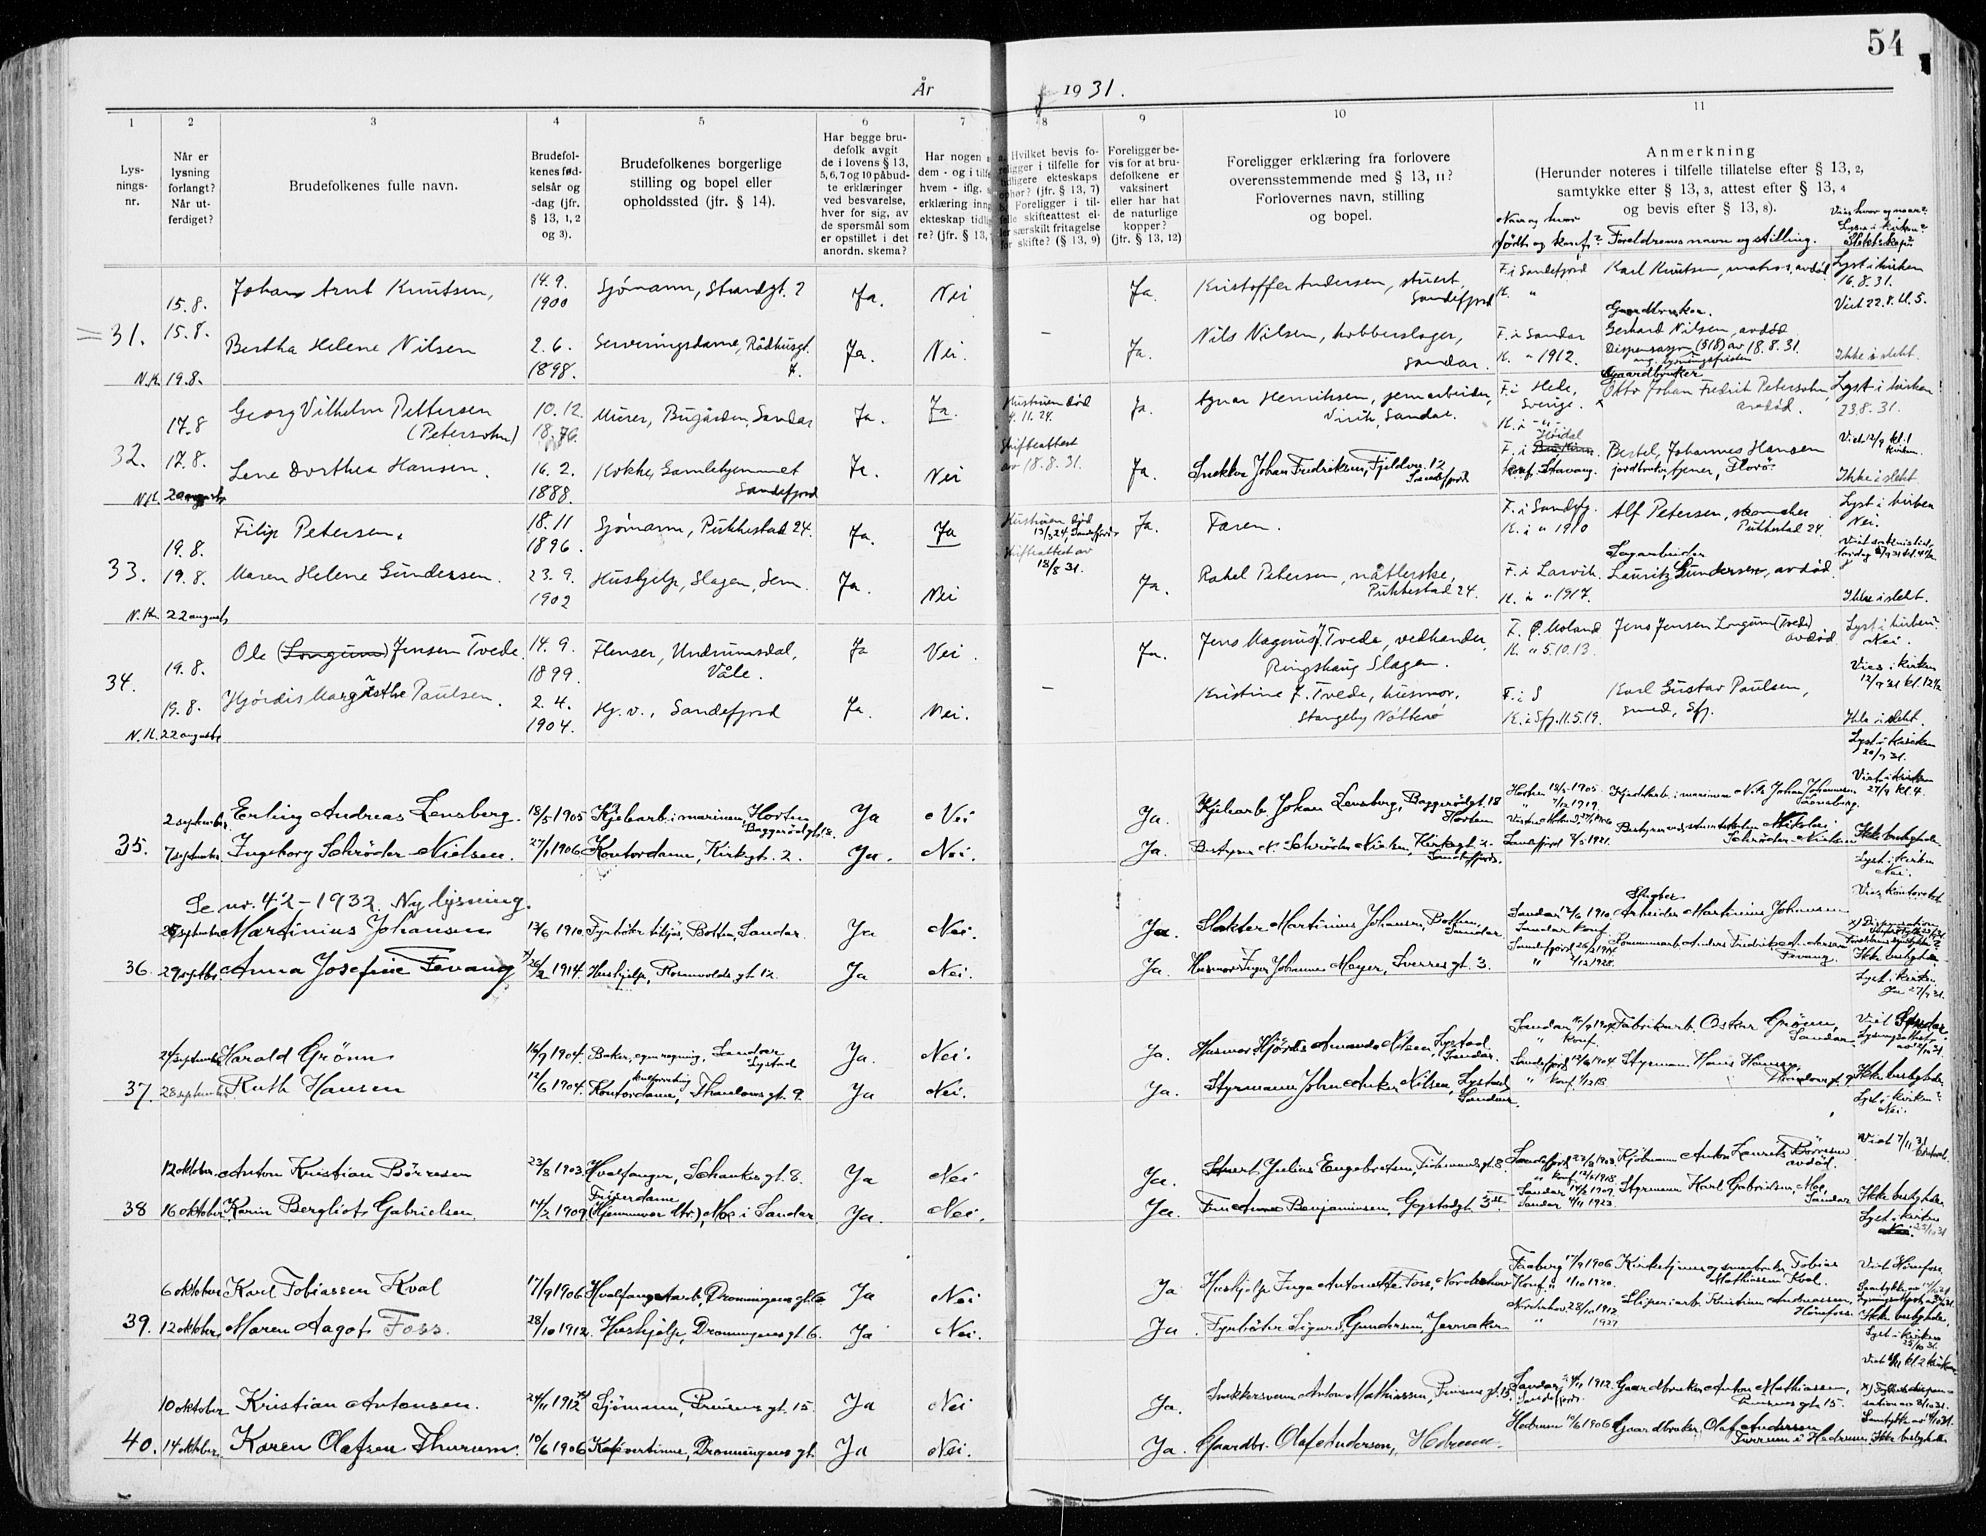 54
År 1931.
1 2 3 4 5 6 7 8 9 10 11
Lys-
nings-
nr.
Når er
lysning
forlangt?
Når ut-
ferdiget?
Brudefolkenes fulle navn.
Brudefol-
kenes fød-
selsår og
-dag (jfr.
§ 13, 1, 2
og 3).
Brudefolkenes borgerlige
stilling og bopel eller
opholdssted (jfr. § 14).
Har begge bru-
defolk avgit
de i lovens § 13,
5, 6, 7 og 10 påbud-
te erklæringer
ved besvarelse,
hver for sig, av
de spørsmål som
er opstillet i det
anordn. skema?
Har nogen a
dem - og i tilfe
hvem - iflg.
erklæring inng
ekteskap tidlig
re? (jfr. § 13,
Hvilket bevis fo-
religger i tilfelle for
tidligere ekteskaps
ophør? (jfr. § 13, 7)
Foreligger i til-
felle skifteattest el-
ler særskilt fritagelse
for skifte? (§ 13, 9)
Foreligger be-
vis for at bru-
defolkene er
vaksinert
eller har hat
de naturlige
kopper?
(jfr. § 13, 12)
Foreligger erklæring fra forlovere
overensstemmende med § 13, 11?
Forlovernes navn, stilling
og bopel.
Anmerkning
(Herunder noteres i tilfelle tillatelse efter § 13, 2,
samtykke efter § 13, 3, attest efter § 13, 4
og bevis efter § 13, 8).
Når og hvor
født og konf.? Foreldrenes navn og stilling.
Vies hvor og naar?
Lyses i kirken?
Slektskap?
15.8. Johan Arnt Knutsen, 14.9. 1900 Sjømann, Strandgt. 2 Ja. Nei Ja. Kristoffer Andersen, stuert, Sandefjord F. i Sandefjord K. " Karl Knutsen, matros, avdød Lyst i kirken 16.8.31. Viet 22.8. kl. 5.
31. 15.8. Bertha Helene Nilsen 2.6. 1898. Serveringsdame, Rådhusgt. Ja. Nei. - Ja. Nils Nilsen, kobberslager, Sandar. F. i Sandar K. " 1912. Gaardbruker. Gerhard Nilsen, avdød Dispensasjon (518) av 18.8.31. ang. lysningsfristen Ikke i slekt.
N.K. 19.8.
17.8 Georg Vilhelm Pettersen (Petersohn) 10.12. 1876. Murer, Bugården, Sandar Ja. Ja. Hustruen død 4.11.24. Ja. Agnar Henriksen, jernarbeider, Virik, Sandar. F. i Hede, Sverige. K. i - " - Gaardbruker Otto Johan Fredrik Petersohn, avdød. Lyst i kirken 23.8.31.
32. 17.8. Lene Dorthea Hansen. 16.2. 1888. Kokke, Gamlehjemmet Sandefjord Ja. Nei Skifteattest av 18.8.31. Ja. Snekker Johan Fredriksen, Fjeldvn. 12 Sandefjord Bertel Johannes Hansen jordbruker, Florø. Viet 12/9 kl. 1 kirken. Ikke i slekt.
N.K. 20 august
19.8. Filip Petersen, 18.11 1896. Sjømann, Pukkestad 24. Ja. Ja Hustruen død 13/3 24, Sandefjord Ja. Faren. F. i Sandefj. K. i " 1910 Alf Petersen, skomaker Pukkestad 24. Lyst i kirken Nei.
33. 19.8. Maren Helene Gundersen. 23.9. 1902 Hushjelp, Slagen, Sem. Ja. Nei Skifteattest av 18/8 31. Ja. Rakel Petersen, nåtlerske, Pukkestad 24. F. i Larvik. K. i " 1917. Sagarbeider Lauritz Gundersen, avdød. Ikke i slekt.
N.K. 22 august
19.8. Ole (Longum) Jensen Tvede. 14.9. 1899. Flenser, Undrumsdal, Våle. Ja Nei. Ja. Jens Magnus J. Tvede, vedhandler, Ringshaug Slagen. F. Ø. Moland. K. " 5.10.13. Jens Jensen Longum (Tvede) avdød Lyst i kirken: Nei.
34. 19.8. Hjørdis Margrethe Paulsen. 2.4. 1904. Hj. v., Sandefjord Ja. Nei. - Kristine J. Tvede, husmor, Stangeby Nøtterø F. i S K. i Sfj. 11.5.19. Karl Gustav Paulsen, smed, Sfj. Vies i kirken 12/9 31 kl. 12½ Ikke i slekt.
N.K. 22 august
2 september Erling Andreas Lensberg. 18/5 1905 Kjelarb. i marinen, Horten Baggerødgt. 18. Ja Nei Ja. Kjelarb. Johan Lensberg, Baggerødgt. 18 Horten Horten 18/5 1905. " 1919. Kjedelarb. i marinen Nils Johan Johannesen Lensberg. Lyst i kirken 20/9 31. Viet i kirken 27/9 kl. 4.
35. 7 september Ingeborg Schrøder Nielsen. 27/1 1906 Kontordame, Kirkegt. 2. Ja. Nei. Ja. Bestyrer N. Schrøder Nielsen, Kirkegt. 2 Sandefjord. Sandefjord 1921. Nikolai Schrøder Nielsen Ikke beslægtede. Lyst i kirken Nei.
Se nr. 42 - 1932. Ny lysning.
september Martinius Johansen 13/6 1910. Fyrbøter tilsjøs, Botten, Sandar. Ja Nei. Ja Slakter Martinius Johansen, Botten, Sandar Sandar 13/6 1910. Sandar Konf. Arbeider Martinius Johansen Vies kontoret
36. 29 septbr. Anna Josefine Fevang x) 26/2 1914. Hushjelp, Rosenvoldsgt. 12. Ja Nei. Ja. Husmor Inger Johanne Meyer, Sverresgt. 3. Sandefjord 26/2 1914 " 1928. Anders Fredrik Andersen Fevang. x) Dispensation Ikke beslægtede. Lyst i kirken Ja 27/9 31.
24 september Harald Grønn 16/9 1904. Baker, egen regning, Sandar Lystad Ja. Nei. Ja. Husmor Hjørdis Amanda Nilsen, Lystad, Sandar. Sandar 16/9 1904 " Konf. Fabrikarb. Oskar Grønn, Sandar. Viet Sandar
37. 28 september Ruth Hansen 12/6 1904. Kontordame, Thaulowsgt. 9. Ja Nei. Ja. Styrmann John Anker Nilsen, Lystad Sandar. Sandefjord 12/6 1904. " Konf. 1/12 18 Styrmann Hans Hansen, Ikke beslægtede. Lyst i kirken: Nei.
12 oktober Anton Kristian Børresen 23/8 1903. Hvalfanger, Schankesgt. 8. Ja Nei Ja. Stuert Julius Engebretsen, Sandefjord 23/8 1903. " Konf. 1918. Anton Laurits Børresen avdød. Viet 7/11 31
38 16 oktober Karin Bergliot Gabrielsen 14/2 1909 Friserdame (Hjemmevær.), Moe i Sandar. Ja. Nei. Ja. Fru Anna Benjaminsen, Gogstadgt. 3 Sandar 14/2 1909. Sandar 1923. Styrmann Karl Gabrielsen, Moe, Sandar Ikke beslægtede. Lyst i kirken Nei. 25/10 31
6 oktober Karl Tobiassen Kval 17/9 1906 Hvalfangstarb., Dronningensgt. 6 Ja Nei Ja Hushjelp Inga Antonette Foss, Norderhov Faaberg 17/9 1906 Konf. " 1/10 1920. Kirketjener og smaabruker Tobias Mathiassen Kval. Viet Hønefoss.
39. 12 oktober Maren Aagot Foss. 28/10 1912. Hushjelp, Dronningensgt. 6. Ja Nei. Ja. Fyrbøter Sigurd Gundersen, Jevnaker Norderhov 28/10 1912 " 1927 Sliperiarb. Kristian Andreassen, Hønefoss. Ikke beslægtede. Lyst i kirken 25/10 31.
10 oktober Kristian Antonsen. 24/11 1912 x) Sjømann, Prinsensgt. 15. Ja Nei Ja. Snekkersvenn Anton Mathiassen, Prinsensgt. 15. Sandar 24/11 1912. Sandefjord Gaardbruker Anton Mathiassen, Prinsensgt. 15.
40. 14 oktober Karen Olafsen Thurum. 10/6 1906 Kafévertinne, Dronningensgt. Ja Nei. Ja. Gaardbr. Olaf Andersen, Hedrum. Hedrum 10/6 1906 Gaardbruker Olaf Andersen Furrum i Hedrum. Ikke beslægtede